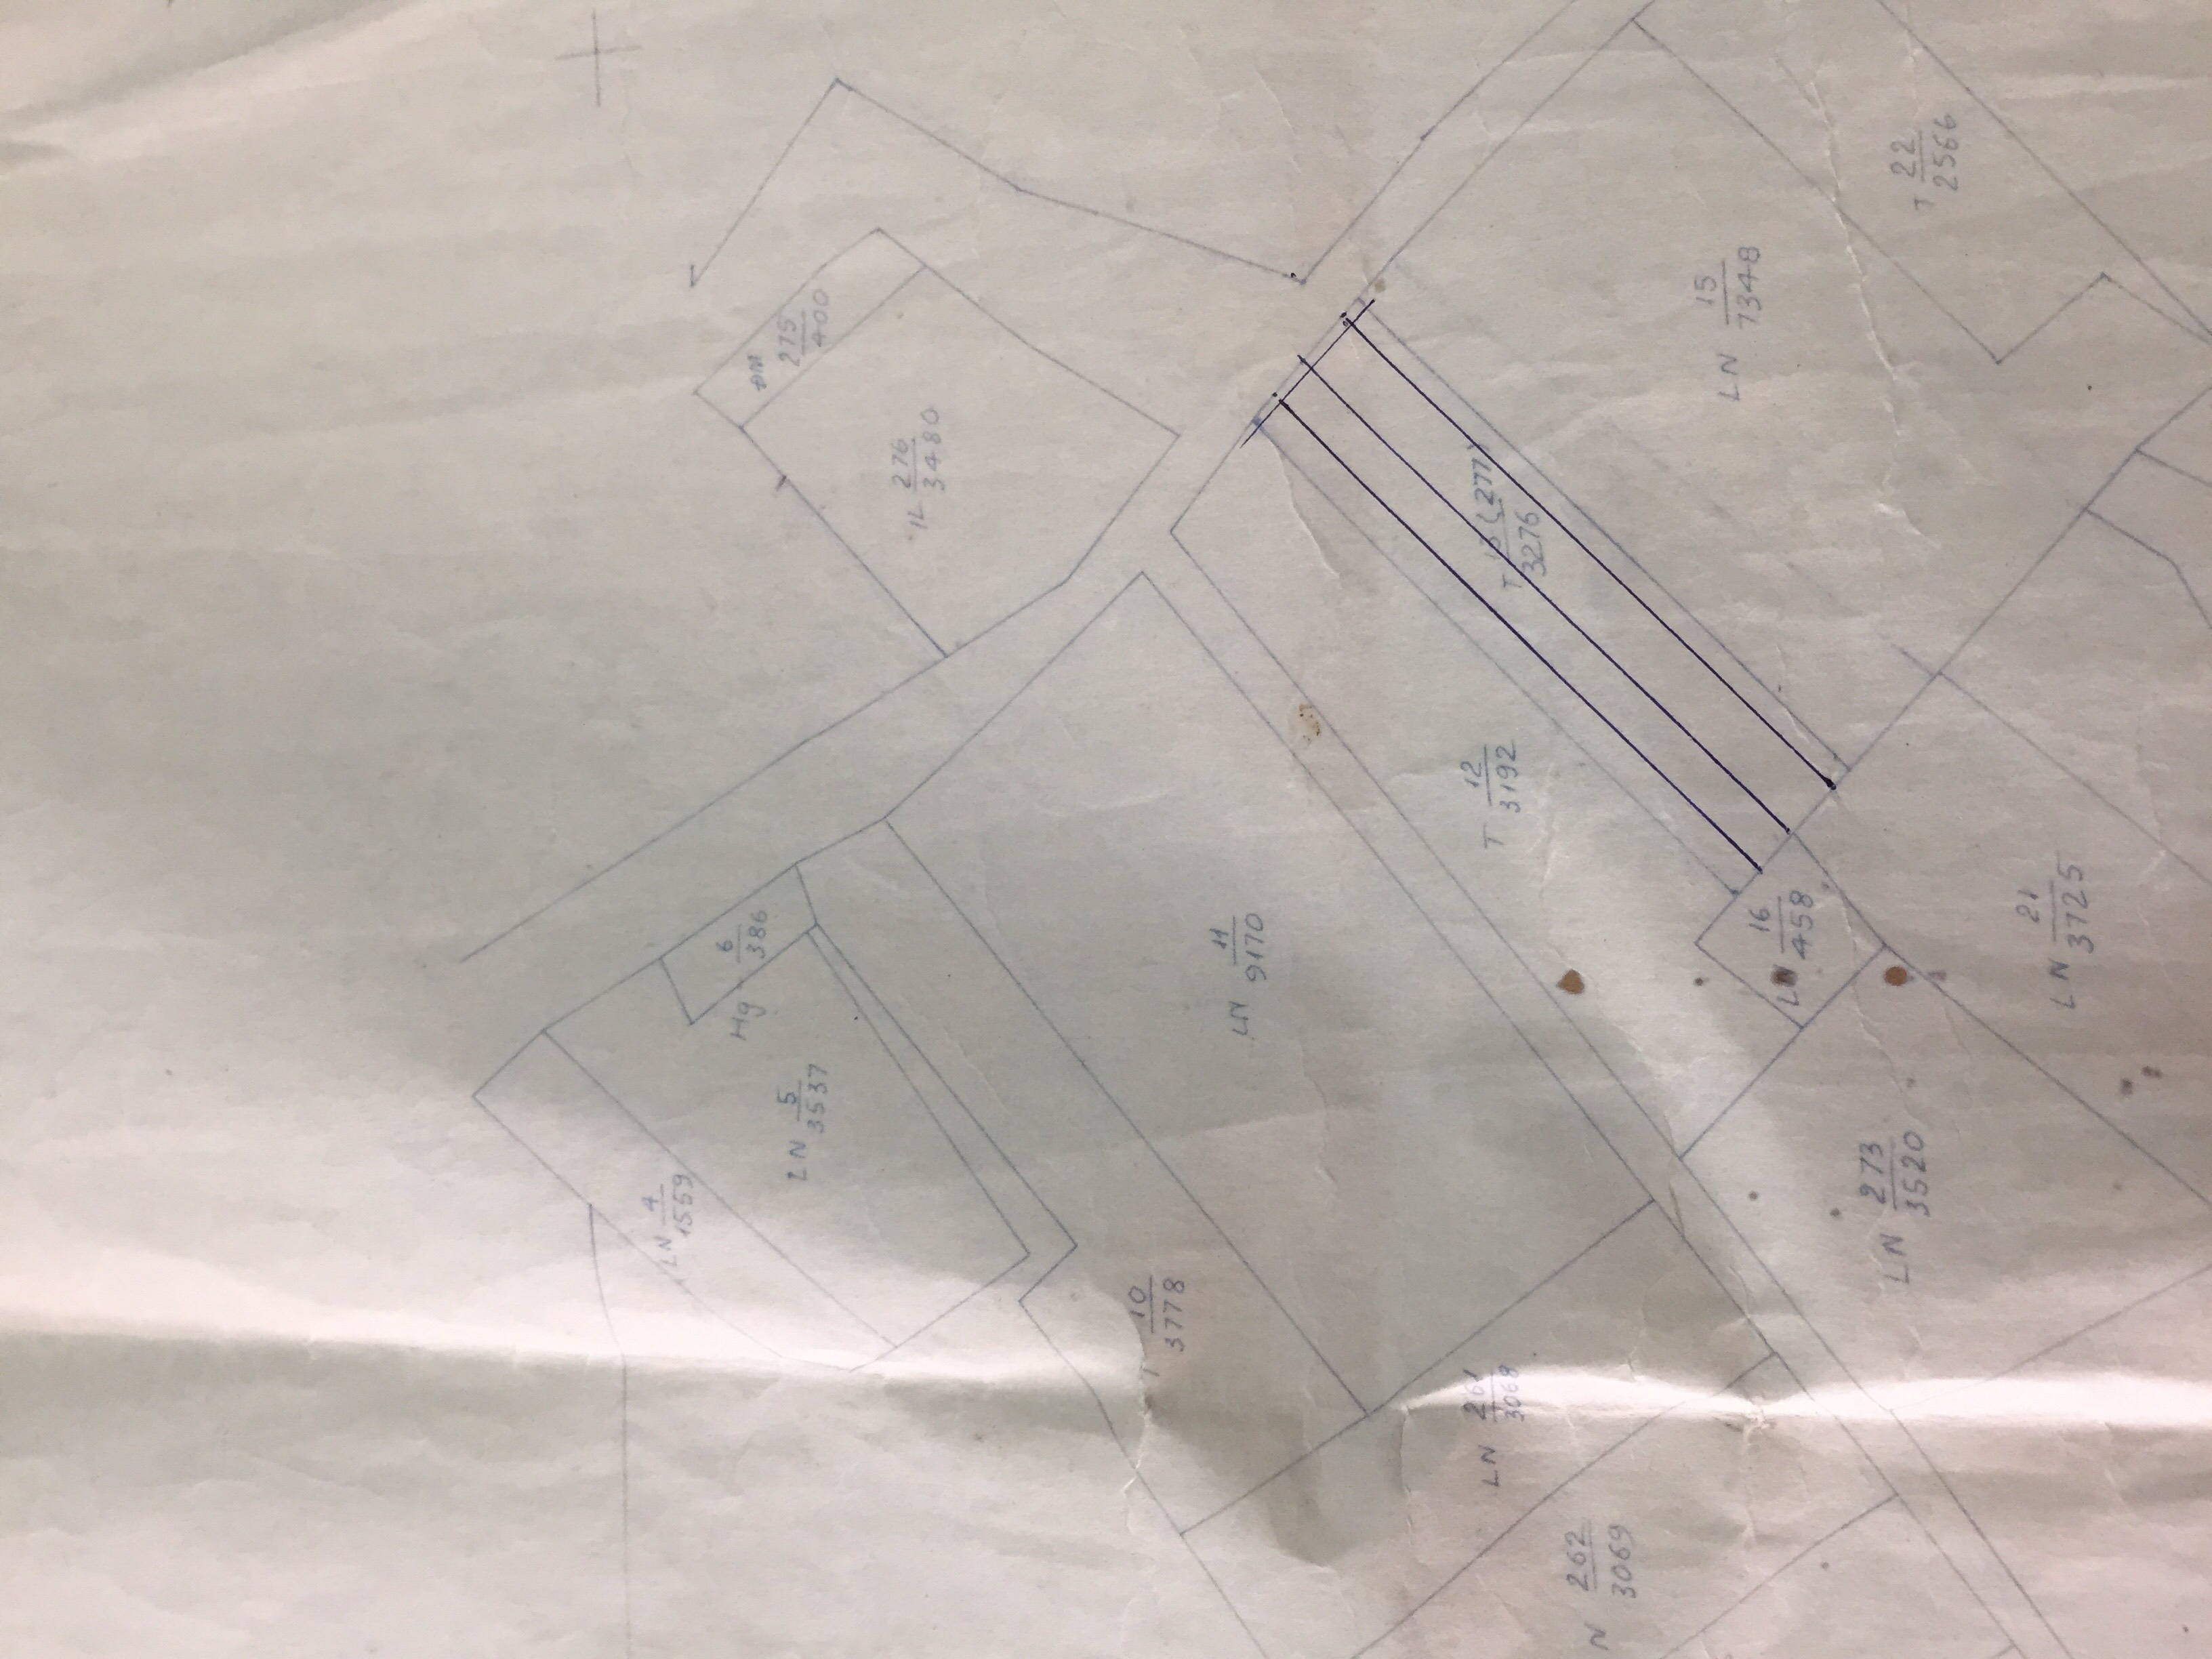 LN 4
1559
6
Hg 386
LN 5
3537
ĐM
275
400
IL 276
3480
T 10
3778
LN 11
9170
LN 261
3068
T 12
3192
T 13 (277)
3276
N 262
3069
LN 15
7348
LN 16
458
LN 273
3520
T 22
2566
LN 21
3725